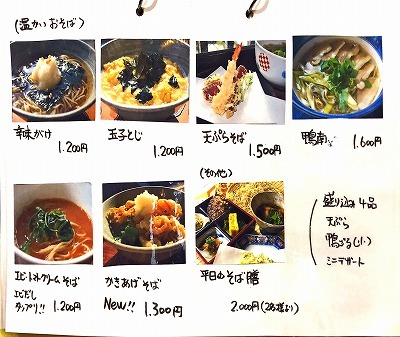 (温かいおそば)
辛味がけ
1.200円
玉子とじ
1.200円
天ぷらそば
1.500円
鴨南
1.600円
(その他)
エビ・トマトクリームそば
エビだし
タップリ!! 1.200円
かきあげそば
New!! 1.300円
平日のそば膳
2.000円(2名様より)
盛り込み4品
天ぷら
ミニデザート